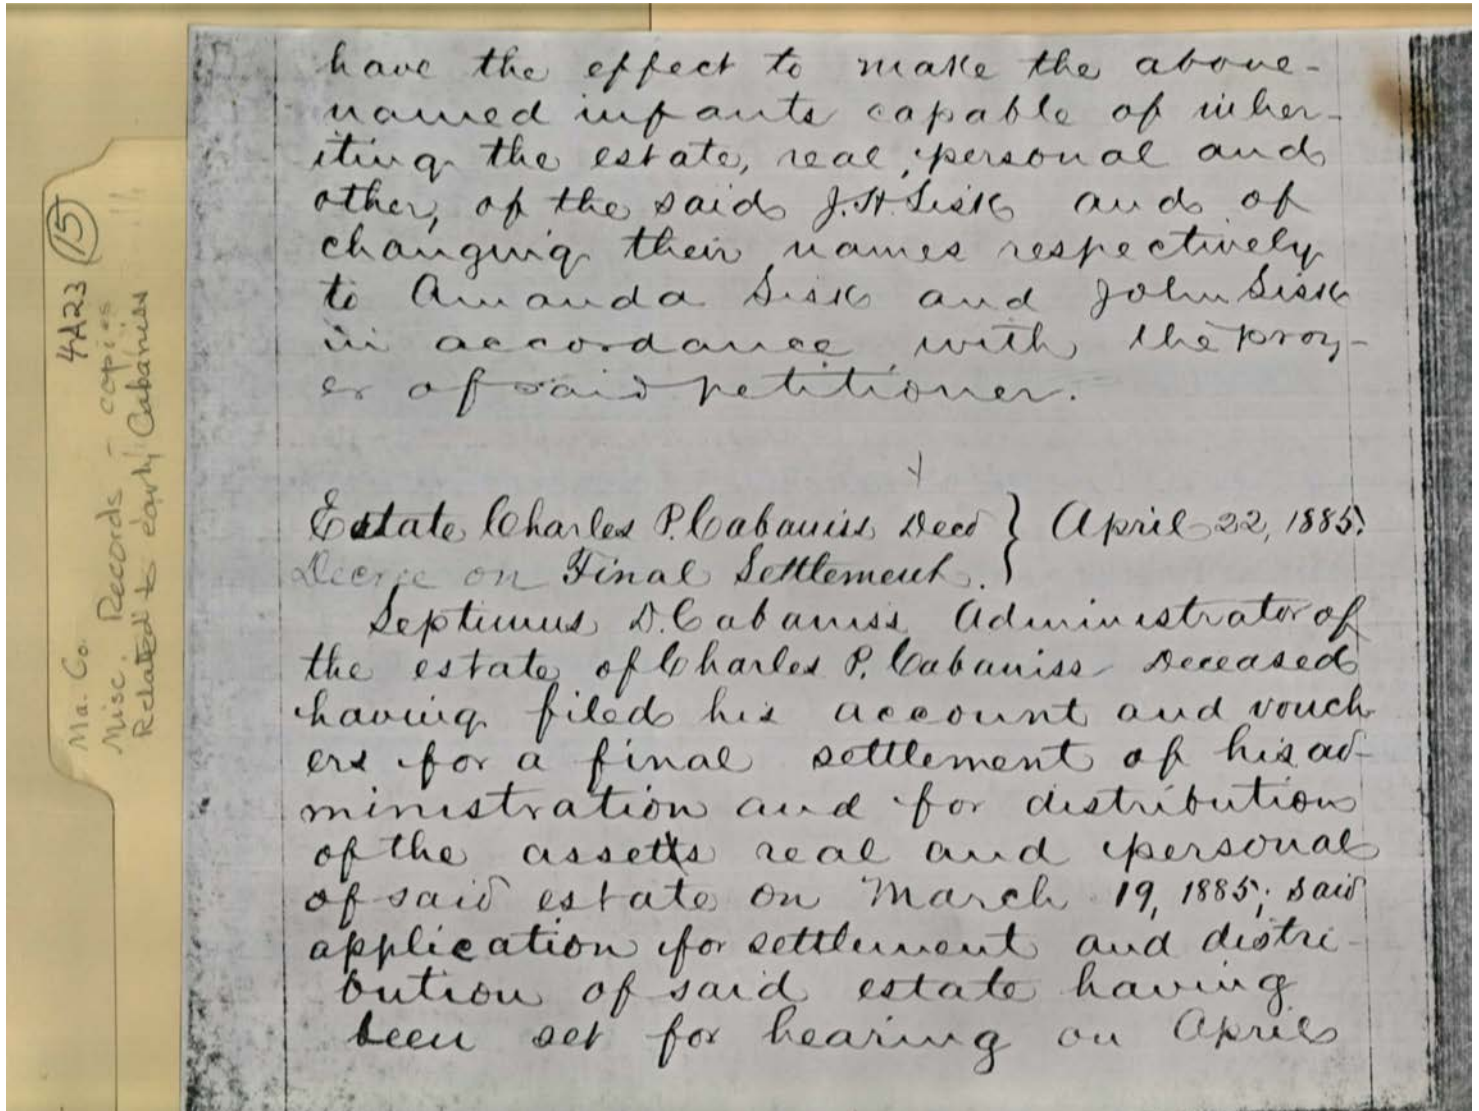 have the effect to make the above-
named infants capable of inher-
iting the estate, real, personal and
other, of the said J. H. Sisk and of
changing their names respectively
to Amanda Sisk and John Sisk
in accordance with the pray-
er of said petitioner.
Estate Charles P. Cabaniss Decd } April 22, 1885.
Decree on Final Settlement. }
Septimus D. Cabaniss Administrator of
the estate of Charles P. Cabaniss Deceased
having filed his account and vouch
ers for a final settlement of his ad-
ministration and for distribution
of the assets real and personal
of said estate on March 19, 1885; said
application for settlement and distri-
bution of said estate having
been set for hearing on April
4A23 (15)
Ma. Co.
Misc. Records - copies
Related to early Cabaniss